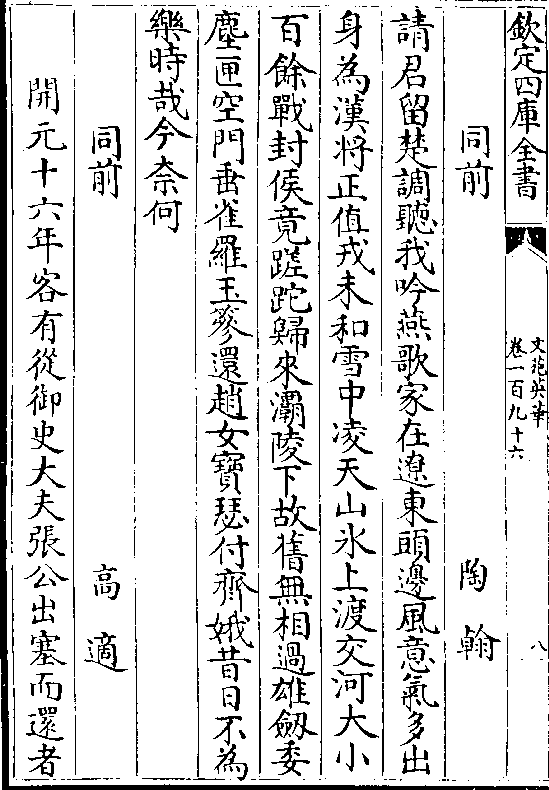 欽定四庫全書
文苑英華
卷一百九十六
八
同前 陶翰
請君留楚調聽我吟燕歌家在遼東頭邊風意氣多出
身為漢將正值戎未和雪中凌天山氷上渡交河大小
百餘戰封侯竟蹉跎歸來灞陵下故舊無相過雄劔委
塵匣空門垂雀羅玉簪還趙女寶瑟付齊娥昔日不為
樂時哉今奈何
同前 高適
開元十六年客有從御史大夫張公出塞而還者